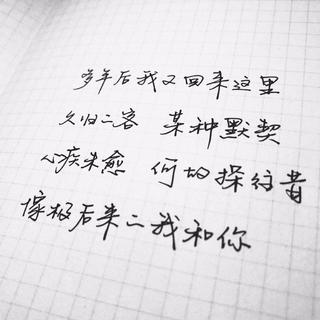 多年后我又回来这里
久归二客 某种默契
心疾未愈 何均探往昔
像极后来二我和你